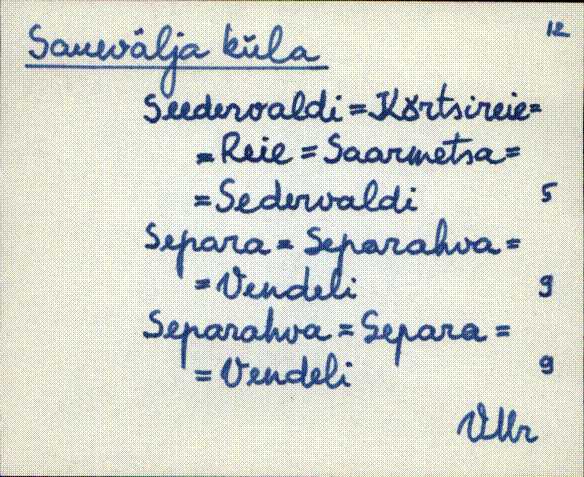 12
Sauevälja küla
Seedervaldi = Körtsireie =
= Reie = Saarmetsa =
= Sedervaldi 5
Separa = Separahva =
= Vendeli 9
Separahva = Separa =
= Vendeli 9